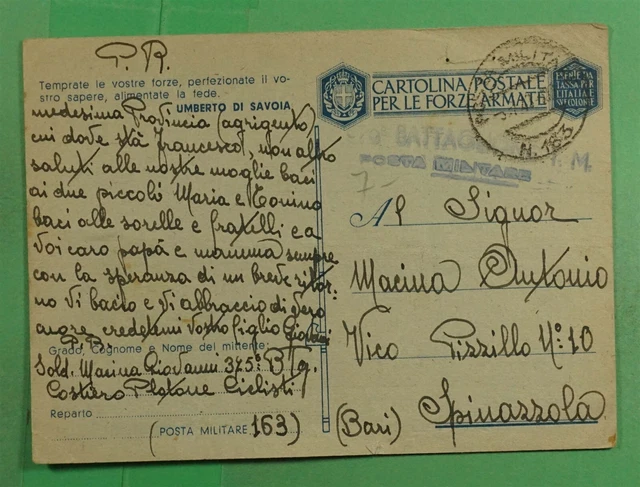 P. R.
Temprate le vostre forze, perfezionate il vo-
stro sapere, alimentate la fede.
UMBERTO DI SAVOIA
medesima Provincia (agrigento)
cui dove stà Francesco, non altro
saluti alle nostre moglie baci
ai due piccoli Maria e Tonino
baci alle sorelle e fratelli e a
voi caro papà e mamma sempre
con la speranza di un breve ritor-
no vi bacio e vi abbraccio di vero
cuore credetemi vostro figlio Giovanni
P. R.
Grado, Cognome e Nome del mittente:
Sold. Macina Giovanni 375º Btg.
Costiero Plotone Ciclisti
Reparto
(POSTA MILITARE 163)
CARTOLINA POSTALE
PER LE FORZE ARMATE
ESENTE DA
TASSA PER
L'ITALIA
SUE COLONIE
N. 163
BATTAGLIONE M.
POSTA MILITARE
7-
Al Signor
Macina Antonio
Vico Pizzillo Nº 10
(Bari) Spinazzola